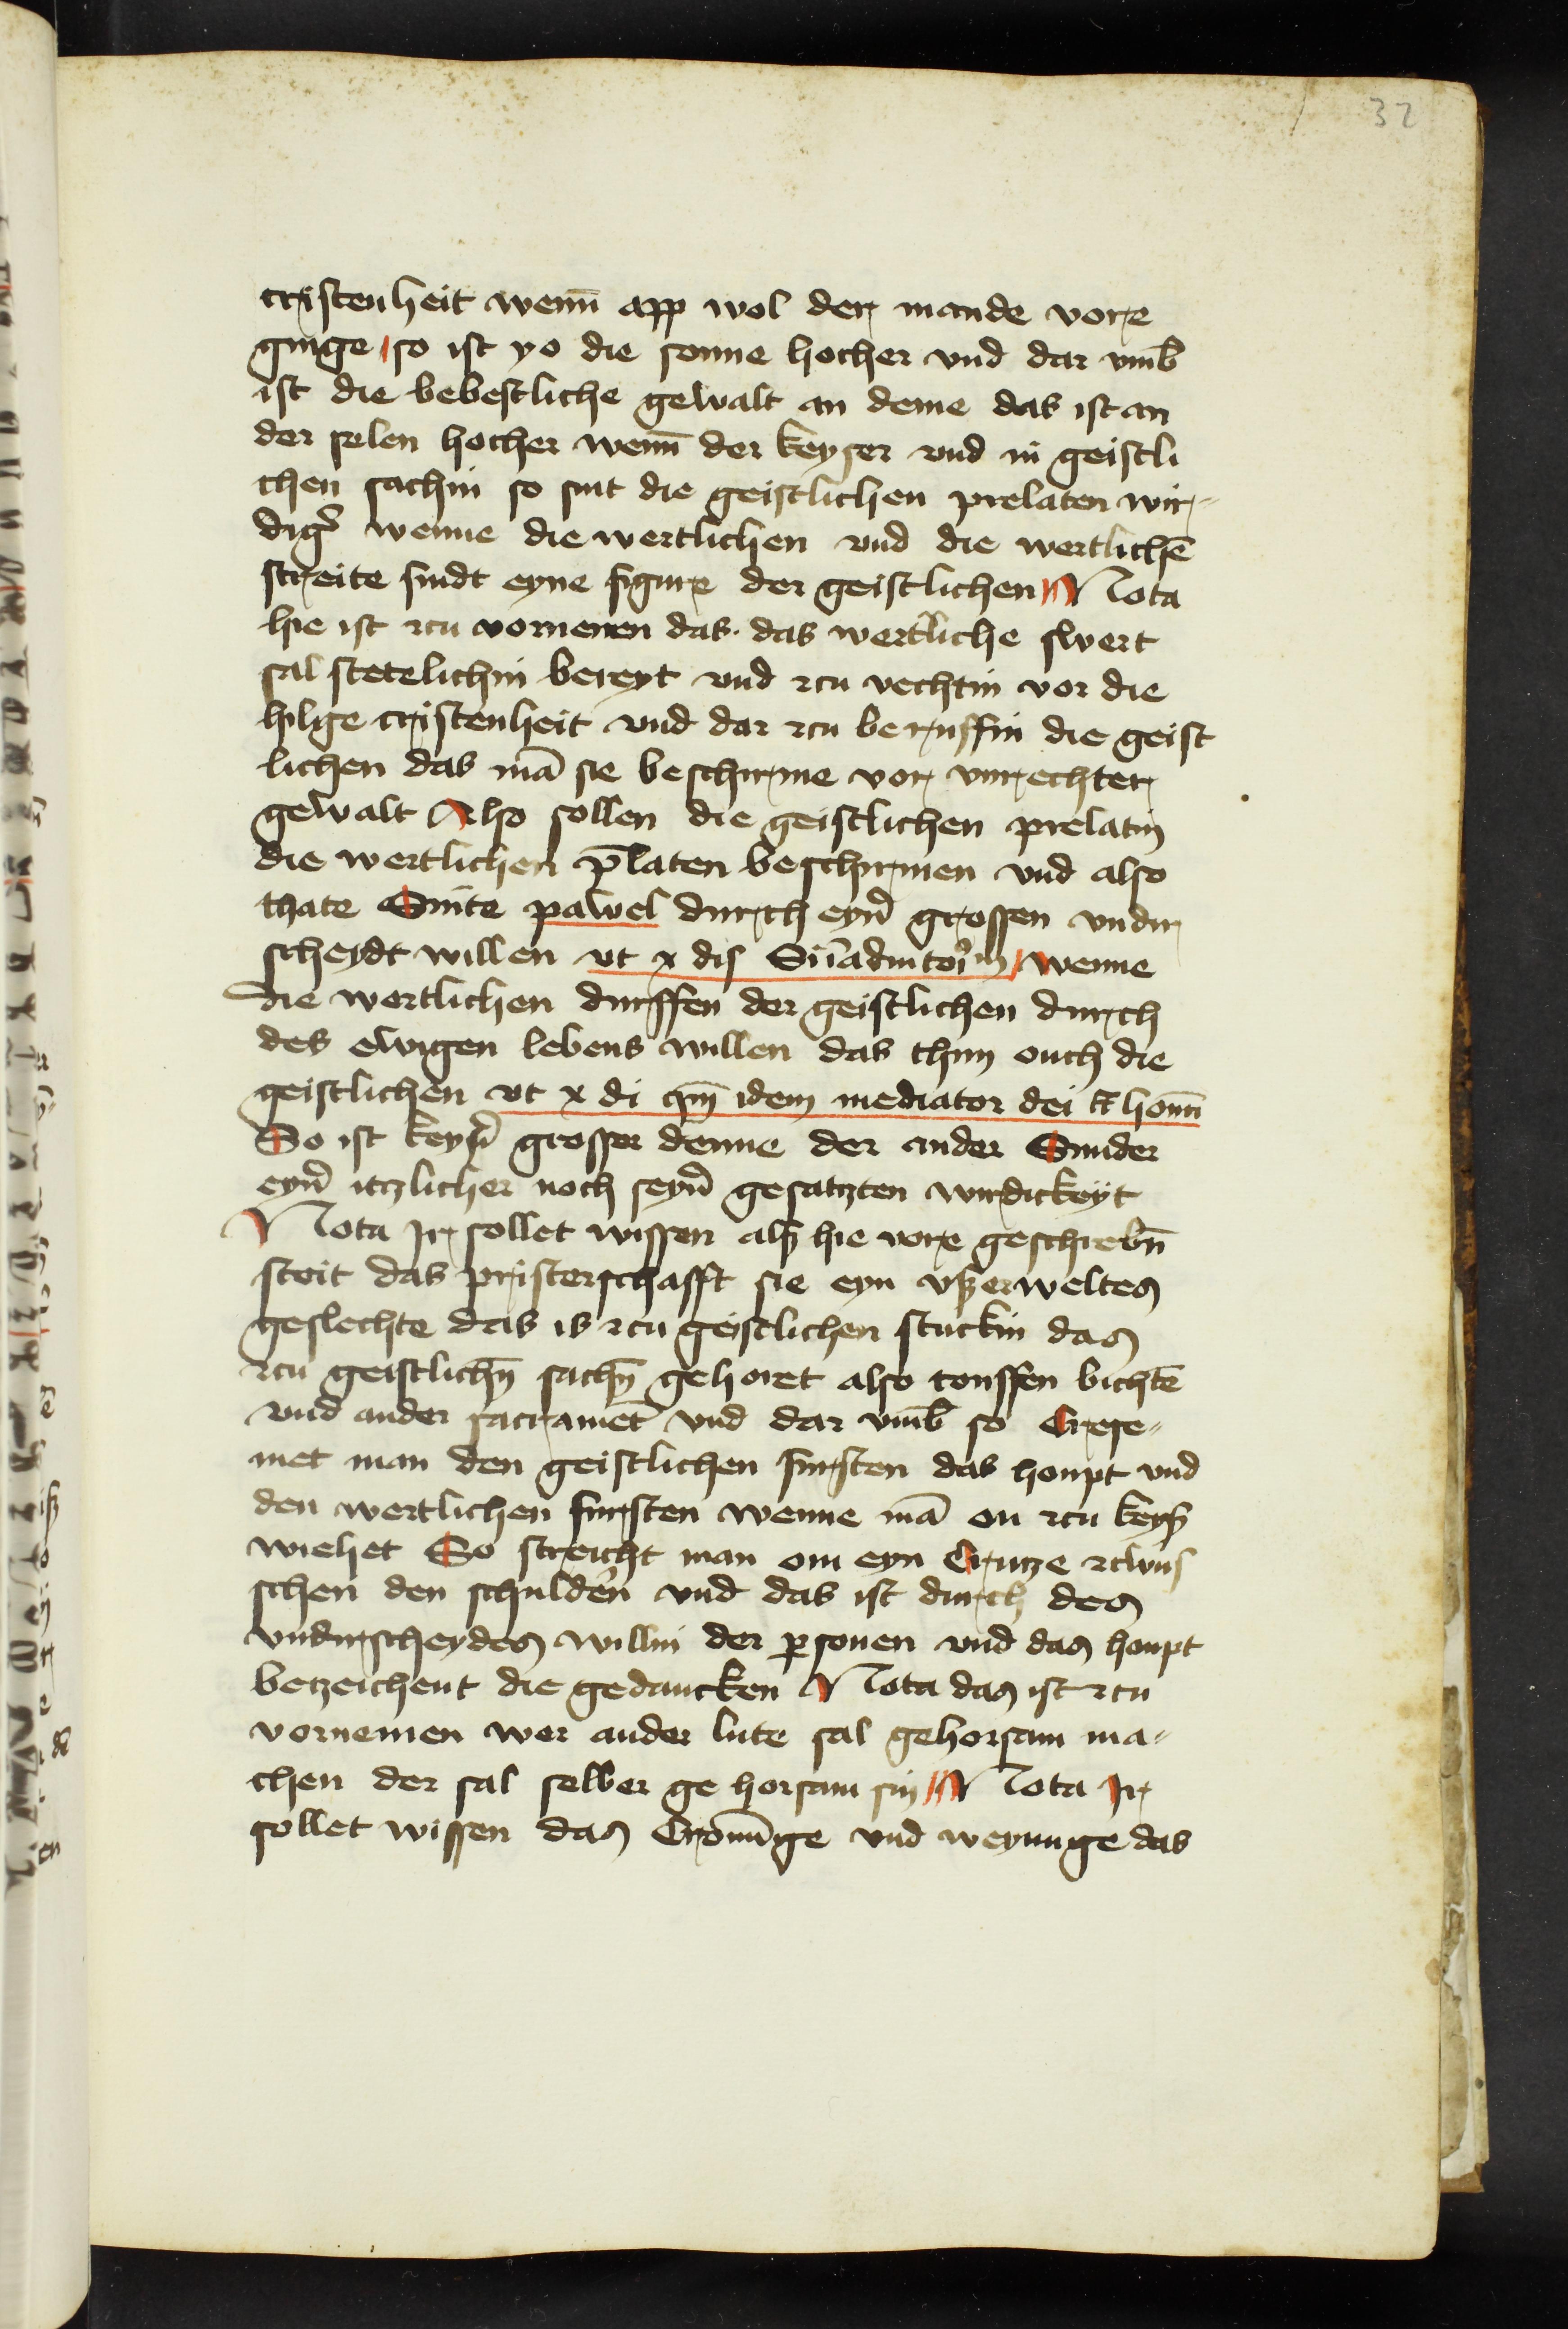 32
cristenheit wenn̄ app wol der mande vore
ginge so ist yo die sonne hocher vnd dar vmb̄
ist die bebestliche gewalt an deme das ist an
der selen hocher wenn̄ der keyser vnd in geistli
chen sachin so sint die geistlichen prelaten wir-
dig̛ wenne die wertlichen vnd die wertlichē
streite sindt eyne figure der geistlichen Nota
hie ist zcu vornemen das das wertliche swert
sal stetelichin bereyt vnd zcu vechtin vor die
hilge cristenheit vnd dar zcu beruffin die geist
lichen das mā sie beschirme vor vnrechter
gewalt Also sollen die geistlichen prelatin
die wertlichen p̄laten beschirmen vnd also
thate Sinte pawel durch eyn̄ grossen vndir
scheydt willen vt x dis wenne
die wertlichen durffen der geistlichen durch
des ewigen lebens willen das thun ouch die
geistlichen vt x di qm̄ idem mediator dei et homī
So ist keyn̄ grosser denne der ander Sunder
eyn̄ itzlicher noch seyn̄ gesatzten wirdickeyt
Nota Ir sollet wissen alß hie vore geschrebn̄
steit das pristerschafft sie eyn vßerweltes
geslechte das is zcu geistlichen stuckin das
zcu geistlichn̄ sachn̄ gehoret also touffen bichtē
vnd ander sacramēt vnd dar vmb̄ so Crese-
met man den geistlichen fursten das houpt vnd
den wertlichen fursten wenne mā on zcu keyß
wiehet So streicht man om eyn Crutze zcwus
schen den schuldern vnd das ist durch des
vndirscheydes willin der p̱sonen vnd das houpt
betzeichent die gedancken Nota das ist zcu
vornemen wer ander lute sal gehorsam ma-
chen der sal selber ge horsam sin Nota Ir
sollet wissen das Cronūge vnd weyunge das